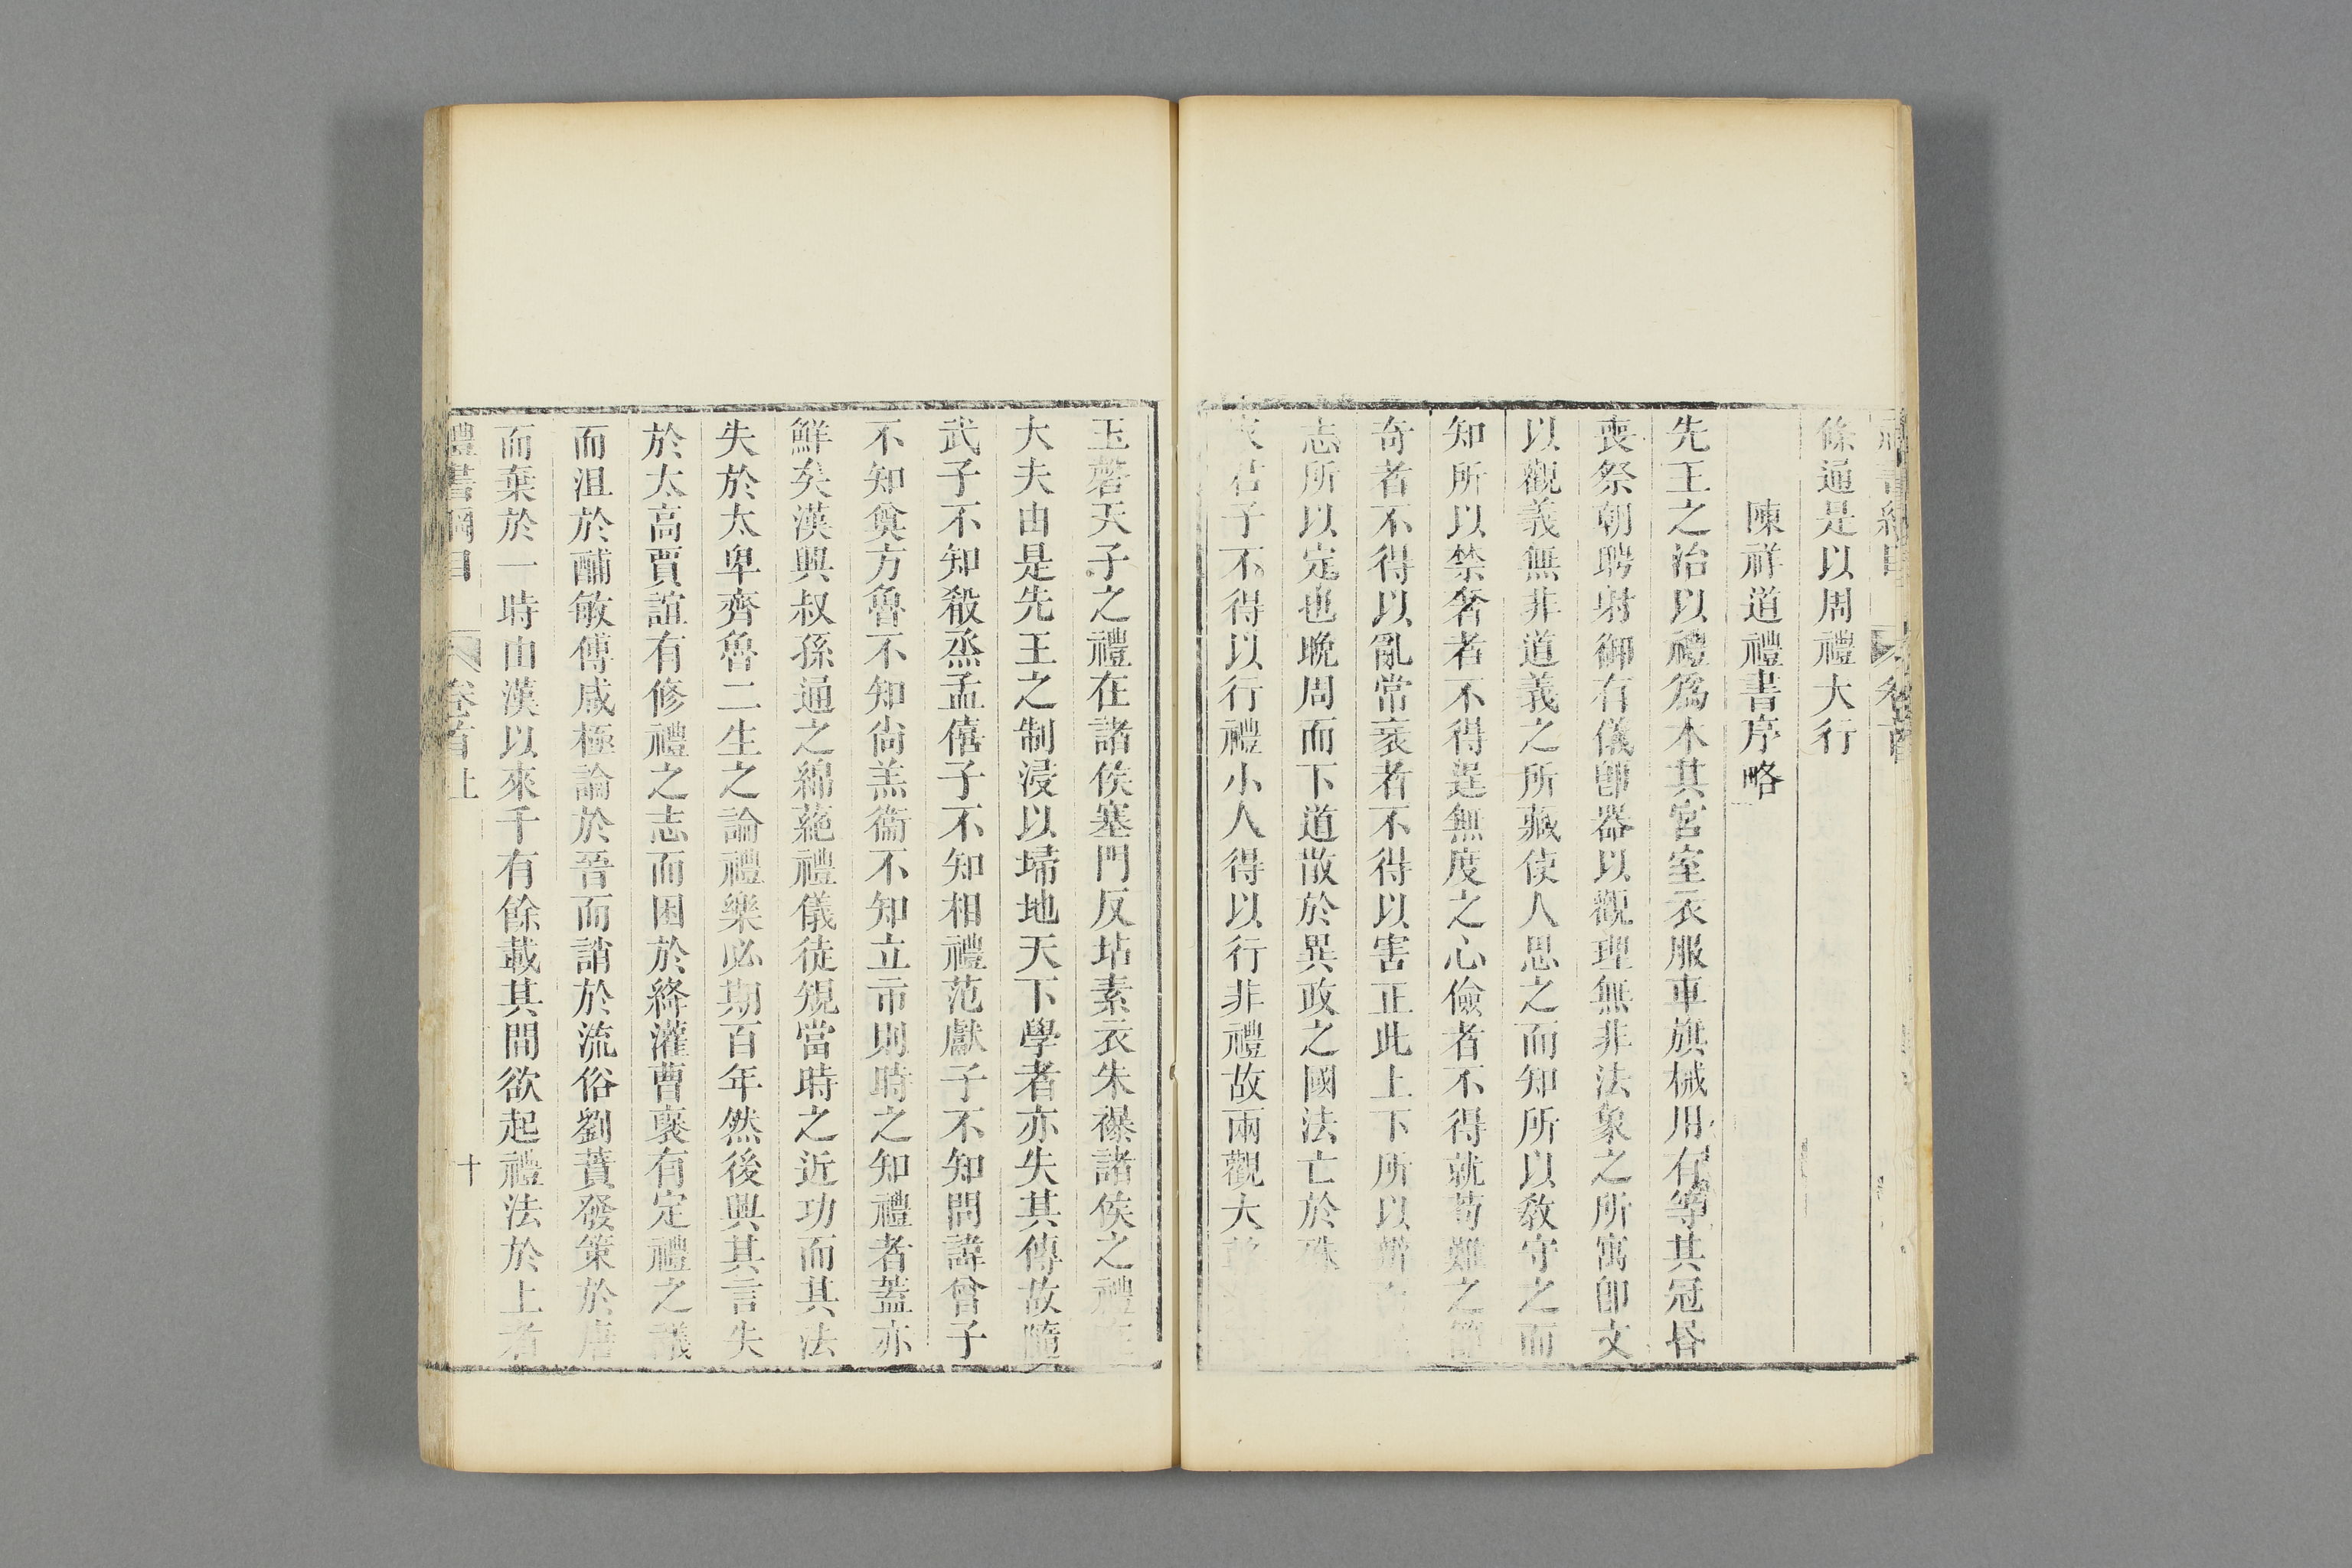 禮書綱目 卷首
餘通是以周禮大行
陳祥道禮書序略
先王之治以禮爲本其宮室衣服車旗械用有等其冠昏
喪祭朝聘射御有儀卽器以觀理無非法象之所寓卽文
以觀義無非道義之所藏使人思之而知所以敎守之而
知所以禁奢者不得逞無度之心儉者不得就苟難之節
奇者不得以亂常衺者不得以害正此上下所以辨
志所以定也晚周而下道散於異政之國法亡於殊
家君子不得以行禮小人得以行非禮故兩觀大
玉磬天子之禮在諸侯塞門反坫素衣朱襮諸侯之禮在
大夫由是先王之制浸以埽地天下學者亦失其傳故隨
武子不知殽烝孟僖子不知相禮范獻子不知問諱曾子
不知奠方魯不知尙羔衞不知立市則時之知禮者蓋亦
鮮矣漢興叔孫通之綿蕝禮儀徒規當時之近功而其法
失於太卑齊魯二生之論禮樂必期百年然後興其言失
於太高賈誼有修禮之志而困於絳灌曹襃有定禮之議
而沮於酺敏傅咸極論於晉而誚於流俗劉蕡發策於唐
而棄於一時由漢以來千有餘載其間欲起禮法於上者
禮書綱目 卷首上 十